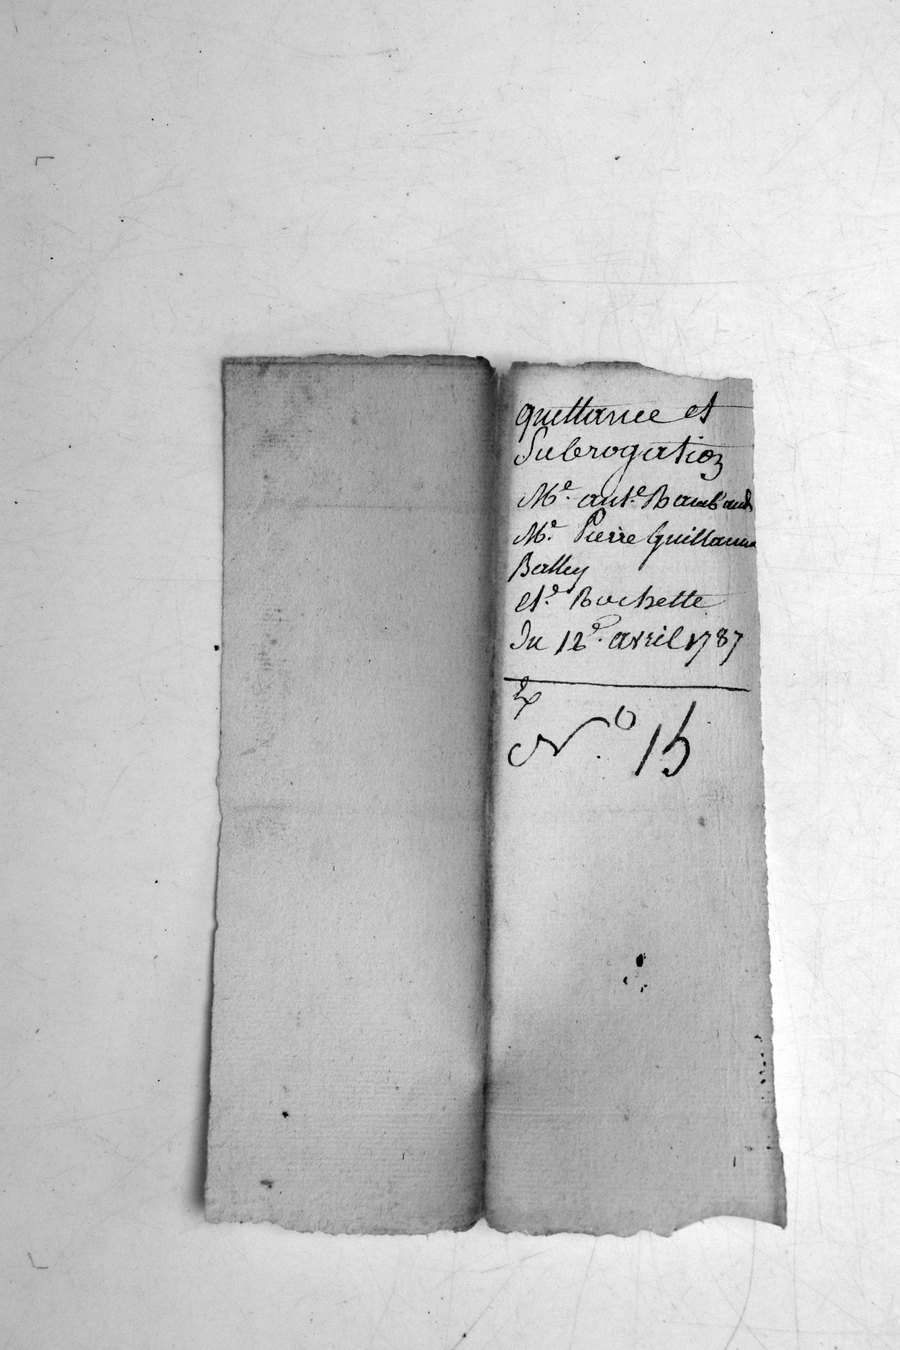 quittance et
Subrogation
Me. ant.e Rambaud
Me. Pierre Guillaume
Balley
et.e Rochette
Du 12e. avril 1787
N.o 15